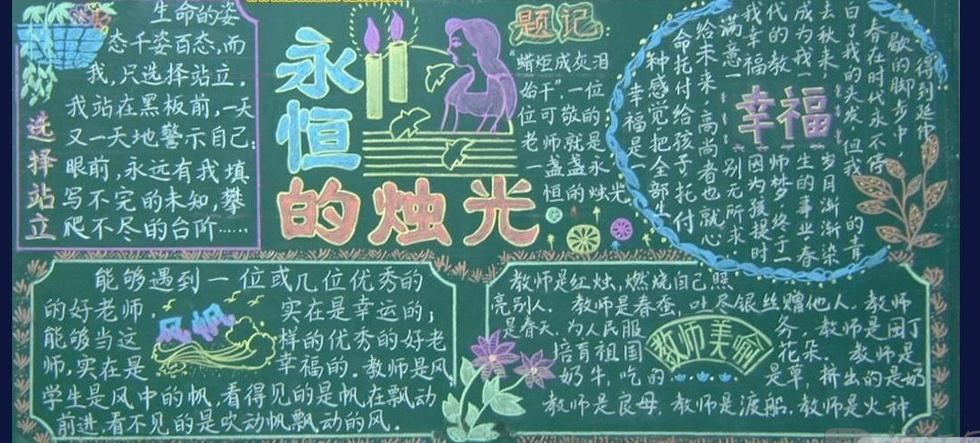 选择站立
生命的姿
态千姿百态,而
我,只选择站立,
我站在黑板前,一天
又一天地警示自己:
眼前,永远有我填
写不完的未知,攀
爬不尽的台阶……
永恒
的烛光
题记:
"蜡炬成灰泪
始干",一位
位可敬的
老师就是
一盏盏永
恒的烛光
幸福
春在时代永不停
白了我的头发,但我
去秋来,岁月渐渐染
成为我一生的事业,春
代的教师梦,终于
我幸福,因为孩提时
满意,别无所求
给未来,高尚者也就心
命托付给孩子,托付
种感觉,把全部生
幸福是一
能够遇到一位或几位优秀的
的好老师,实在是幸运的;
能够当这样的优秀的好老
师,实在是幸福的.教师是风
学生是风中的帆,看得见的是帆在飘动
前进,看不见的是吹动帆飘动的风.
风帆
教师是红烛,燃烧自己照
亮别人. 教师是春蚕,吐尽银丝赠他人.教师
是春天,为人民服务. 教师是园丁
培育祖国花朵. 教师是
奶牛,吃的是草,挤出的是奶
教师是良母,教师是渡船,教师是火种.
教师美喻